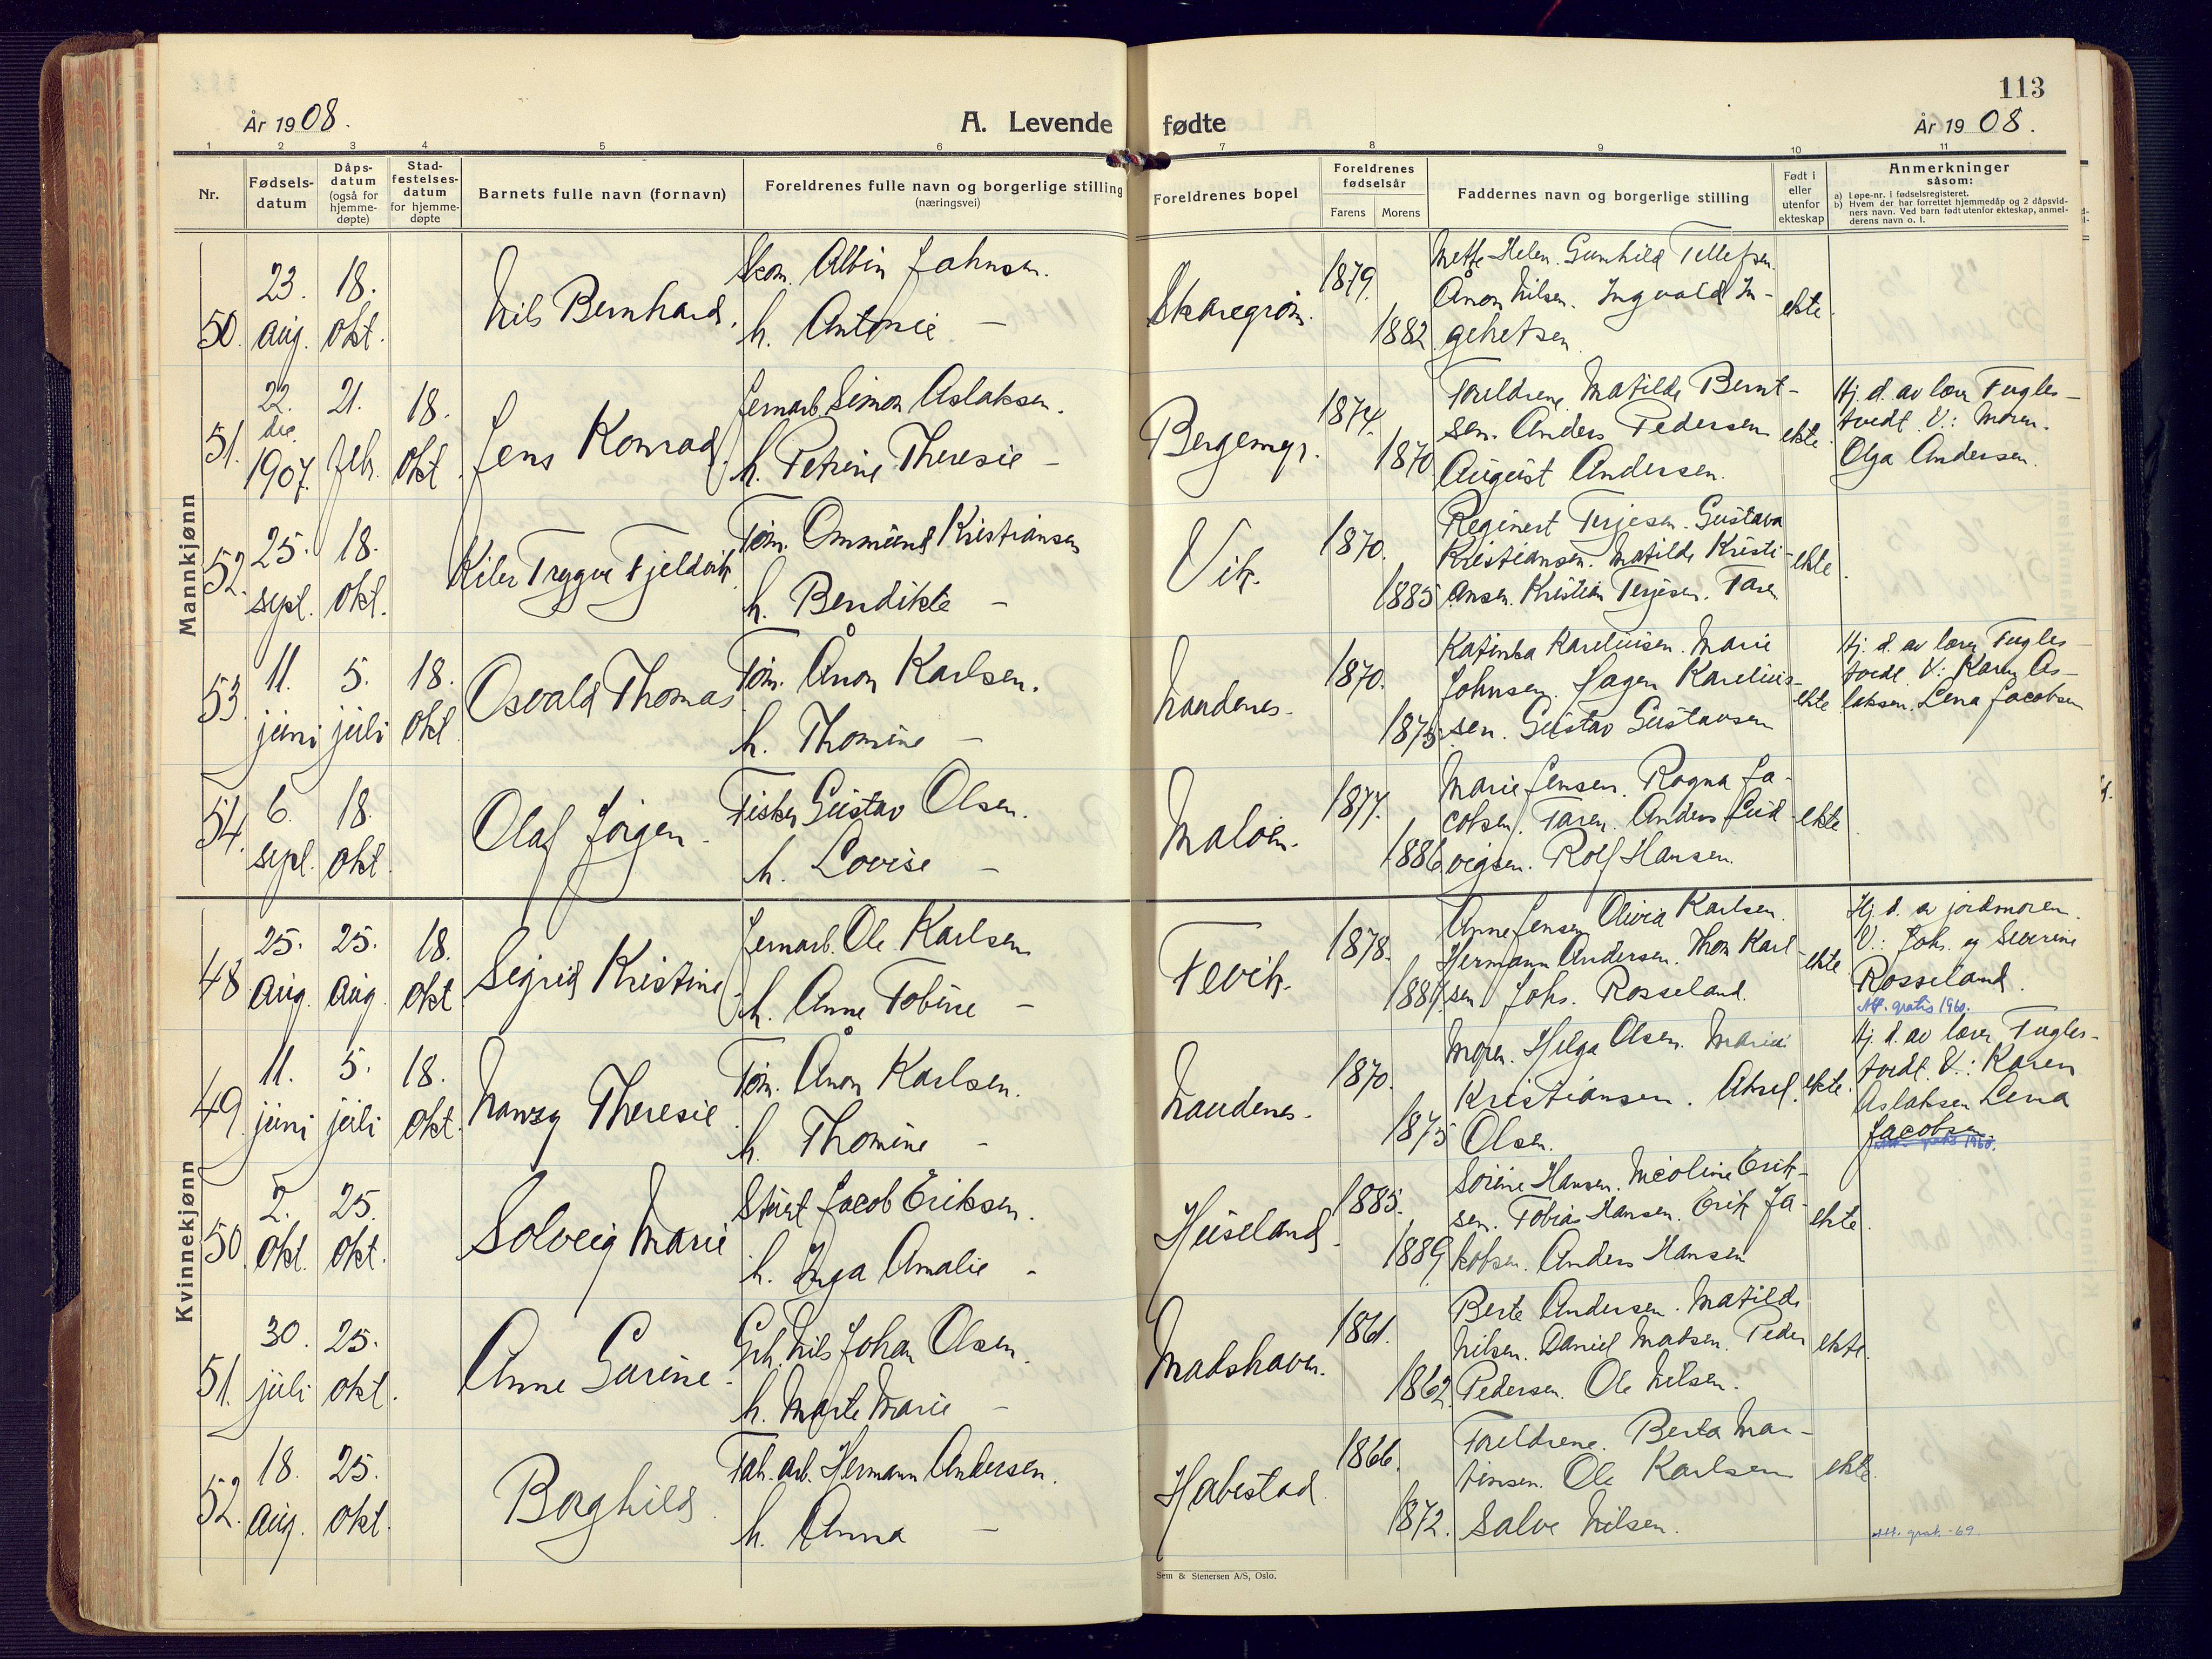 113
År 1908.
A. Levende fødte
År 1908.
1 2 3 4 5 6 7 8 9 10 11
Nr.
Fødsels-
datum
Dåps-
datum
(også for
hjemme-
døpte)
Stad-
festelses-
datum
for hjemme-
døpte
Barnets fulle navn (fornavn)
Foreldrenes fulle navn og borgerlige stilling
(næringsvei)
Foreldrenes bopel
Foreldrenes
fødselsår
Farens
Morens
Faddernes navn og borgerlige stilling
Født i
eller
utenfor
ekteskap
Anmerkninger
såsom:
a) Løpe-nr. i fødselsregisteret.
b) Hvem der har forrettet hjemmedåp og 2 dåpsvid-
ners navn. Ved barn født utenfor ekteskap, anmel-
derens navn o. l.
Mannkjønn
50.
23.
aug.
18.
okt.
Nils Bernhard.
Skom. Albin Jahnsen.
h. Antonie —
Skaregrøm.
1879.
1882
Mette Helen. Gunhild Tellefsen.
Ånon Nilsen. Ingvald In-
gehetsen.
ekte.
51.
22.
des.
1907.
21.
febr.
18.
okt.
Jens Konrad.
Jernarb. Simon Aslaksen.
h. Petrine Theresie —
Bergemyr.
1874.
1870
Foreldrene. Matilde Bernt-
sen. Anders Pedersen
August Andersen.
ekte.
Hj. d. av lærer Fugles-
tvedt. V.: Moren.
Olga Andersen.
52.
25.
sept.
18.
okt.
Kiler Trygve Fjeldvik
Tøm. Ommund Kristiansen
h. Bendikte —
Vik.
1870.
1885
Reginert Terjesen. Gustava
Kristiansen. Matilde Kristi-
ansen. Kristian Terjesen. Faren
ekte.
53.
11.
juni
5.
juli
18.
okt.
Osvald Thomas
Tøm. Ånon Karlsen.
h. Thomine —
Naudenes.
1870.
1875
Katinka Kareliusen. Marie
Johnsen. Jagen Karelius-
sen. Gustav Gustavsen
ekte
Hj. d. av lærer Fugles-
tvedt. V: Karen As-
laksen. Lena Jacobsen
54.
6.
sept.
18.
okt.
Olaf Jørgen.
Fisker Gustav Olsen.
h. Lovise —
Maløen.
1877.
1886
Marie Jensen. Ragna Ja-
cobsen. Faren. Anders Lud-
vigsen. Rolf Hansen.
ekte.
Kvinnekjønn
48.
25.
aug.
25.
aug.
18.
okt.
Sigrid Kristine
Jernarb. Ole Karlsen
h. Anne Tobine —
Fevik.
1878.
1884.
Anne Jensen Olivia Karlsen.
Hermann Andersen. Thom Karl-
sen. Johs. Rosseland.
ekte.
Hj. d. av jordmoren.
V.: Johs. og Severine
Rosseland.
Att. gratis 1960.
49.
11.
juni
5.
juli
18.
okt.
Nanzy Theresie
Tøm. Ånon Karlsen.
h. Thomine —
Naudenes.
1870.
1875
Moren. Helga Olsen. Marie
Kristiansen. Aksel.
Olsen.
ekte.
Hj. d. av lærer Fugles-
tvedt. V.: Karen
Aslaksen Lena
Jacobsen
50.
2.
okt.
25.
okt.
Solveig Marie
Stuert Jacob Eriksen.
h. Inga Amalie —
Huseland.
1885.
1889
Sørine Hansen. Nicoline Erik-
sen. Tobias Hansen. Erik Ja-
kobsen. Anders Hansen
ekte.
51.
30.
juli
25.
okt.
Anne Gurine.
Grh. Nils Johan Olsen.
h. Marte Marie —
Madshaven.
1861.
1862.
Berte Andersen. Matilde
Nilsen. Daniel Madsen. Peder
Pedersen. Ole Nilsen.
ekte.
52.
18.
aug.
25.
okt.
Borghild.
Fab. arb. Hermann Andersen.
h. Anna —
Habestad.
1866.
1872.
Foreldrene. Berta Mar-
tinsen. Ole Karlsen
Salve Nilsen.
ekte.
Att. grat. -69.
Sem & Stenersen A/S, Oslo.